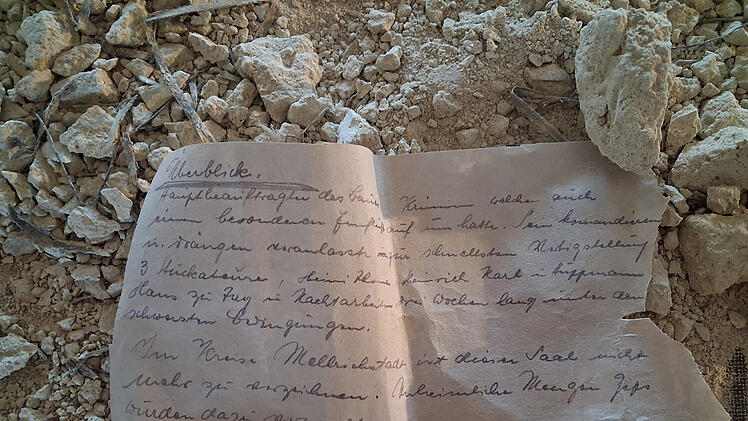 Überblick.
Hauptbeauftragter des war Krimm welcher auch
einen besonderen Einfluß auf uns hatte. Sein komandieren
u. drängen veranlasst zur schnellsten Fertigstellung
3 Stückateure, Heinrich Karl u. Hüppmann
Hans zu Tag u. Nachtarbeiten drei Wochen lang unter den
schwersten Bedingungen.
Im Kreise Mellrichstadt ist dieser Saal nicht
mehr zu verzeichnen. Unheimliche Mengen Gips
wurden dazu